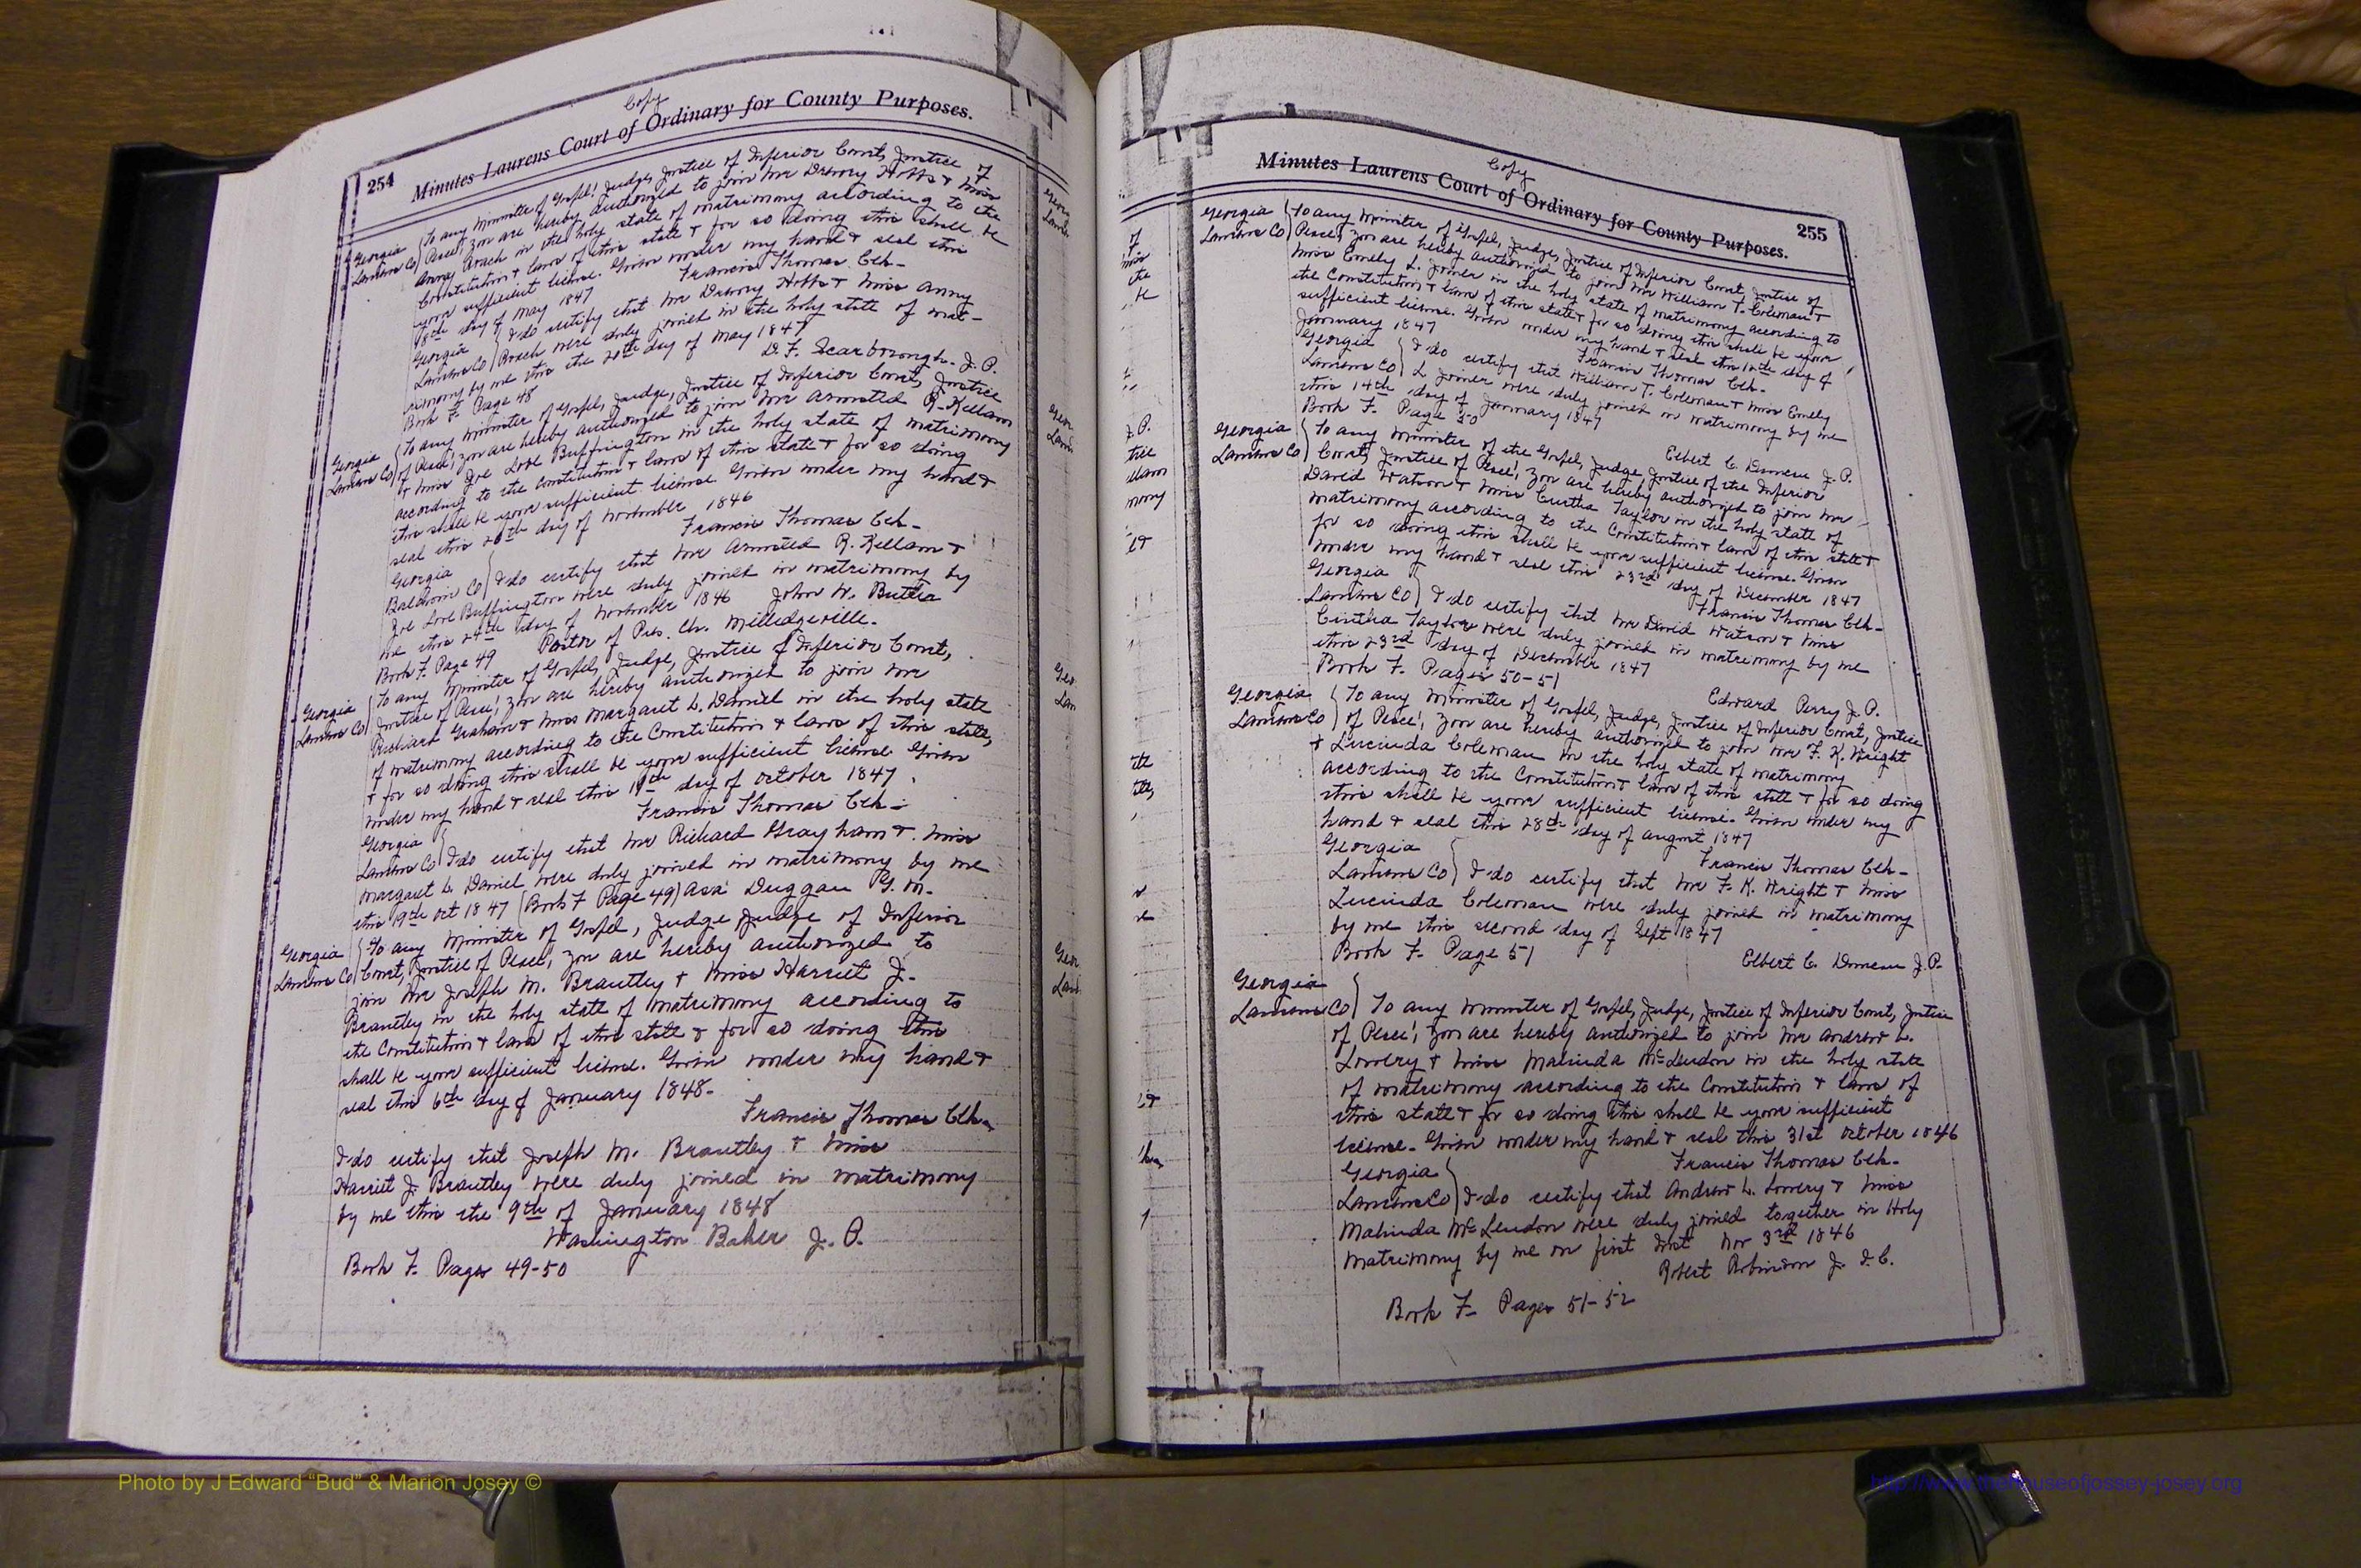 Copy
254 Minutes Laurens Court of Ordinary for County Purposes.
Georgia To any Minister of Gospel, Judge, Justice of Inferior Court, Justice of
Laurens Co Peace, you are hereby authorized to join Mr Drewry & Miss
Anny Roach in the holy state of matrimony according to the
Constitution & laws of this state & for so doing this shall be
your sufficient license. Given under my hand & seal this
18th day of May 1847 Francis Thomas Clk-
Georgia I do certify that Mr Drewry & Miss Anny
Laurens Co Roach were duly joined in the holy state of mat-
rimony by me this the 20th day of May 1847
D. F. Scarborough. J. P.
Book F. Page 48
Georgia To any minister of Gospel, Judge, Justice of Inferior Court, Justice
Laurens Co of Peace, you are hereby authorized to join Mr Armsted R. Kellam
& Miss Zoe Love Buffington in the holy state of matrimony
according to the Constitution & laws of this state & for so doing
this shall be your sufficient license Given under my hand &
seal this 20th day of November 1846
Francis Thomas Clk-
Georgia
Baldwin Co I do certify that Mr Armsted R. Kellam &
Zoe Love Buffington were duly joined in matrimony by
me this 24th day of November 1846 John W.
Pastor of Pres. Ch. Milledgeville.
Book F. Page 49
Georgia To any Minister of Gospel, Judge, Justice of Inferior Court,
Laurens Co Justice of Peace, you are hereby authorized to join Mr
Richard Graham & Miss Margaret L. Daniel in the holy state
of matrimony according to the Constitution & laws of this state,
& for so doing this shall be your sufficient license Given
under my hand & seal this day of October 1847
Francis Thomas Clk-
Georgia
Laurens Co I do certify that Mr Richard Grayham & Miss
Margaret L. Daniel were duly joined in matrimony by me
this 19th Oct 1847 (Book F Page 49) Asa Duggan G. M.
Georgia To any Minister of Gospel, Judge, Judge of Inferior
Laurens Co Court, Justice of Peace, you are hereby authorized to
join Mr Joseph M. Brantley & Miss Harriet J.
Brantley in the holy state of matrimony according to
the Constitution & laws of this state & for so doing this
shall be your sufficient license. Given under my hand &
seal this 6th day of January 1848-
Francis Thomas Clk.
I do certify that Joseph M. Brantley & Miss
Harriet J. Brantley were duly joined in matrimony
by me this the 9th of January 1848
Washington Baker J. P.
Book F. Pages 49-50
Copy
Minutes Laurens Court of Ordinary for County Purposes. 255
Georgia To any Minister of Gospel, Judge, Justice of Inferior Court, Justice of
Laurens Co Peace, you are hereby authorized to join Mr William T. Coleman &
Miss Emely L. Joiner in the holy state of matrimony according to
the Constitution & laws of this state & for so doing this shall be your
sufficient license. Given under my hand & seal this day of
January 1847 Francis Thomas Clk-
Georgia I do certify that William T. Coleman & Miss Emely
Laurens Co L Joiner were duly joined in matrimony by me
this 14th day of January 1847
Book F. Page 50 Elbert C. Duncan J. P.
Georgia To any Minister of the Gospel, Judge, Justice of the Inferior
Laurens Co Court, Justice of Peace, you are hereby authorized to join Mr
David Watson & Miss Cintha Taylor in the holy state of
matrimony according to the Constitution & laws of this state &
for so doing this shall be your sufficient license. Given
under my hand & seal this 23rd day of December 1847
Georgia Francis Thomas Clk-
Laurens Co I do certify that Mr David Watson & Miss
Cintha Taylor were duly joined in matrimony by me
this 23rd day of December 1847
Book F. Pages 50-51 Edward Perry J. P.
Georgia To any Minister of Gospel, Judge, Justice of Inferior Court, Justice
Laurens Co of Peace, you are hereby authorized to join Mr F. K. Wright
& Lucinda Coleman in the holy state of matrimony
according to the Constitution & laws of this state & for so doing
this shall be your sufficient license. Given under my
hand & seal this 28th day of August 1847
Georgia Francis Thomas Clk-
Laurens Co I do certify that Mr F. K. Wright & Miss
Lucinda Coleman were duly joined in matrimony
by me this second day of Sept 1847
Book F. Page 51 Elbert C. Duncan J. P.
Georgia
Laurens Co To any Minister of Gospel, Judge, Justice of Inferior Court, Justice
of Peace, you are hereby authorized to join Mr Andrew L.
Lowery & Miss Malinda McLendon in the holy state
of matrimony according to the Constitution & laws of
this state & for so doing this shall be your sufficient
license. Given under my hand & seal this 31st October 1846
Georgia Francis Thomas Clk.
Laurens Co I do certify that Andrew L. Lowery & Miss
Malinda McLendon were duly joined together in Holy
Matrimony by me on first Inst Nov 3rd 1846
Robert Robinson J. I. C.
Book F. Pages 51-52
Photo by J Edward “Bud” & Marion Josey ©
http://www.thehouseofjossey-josey.org